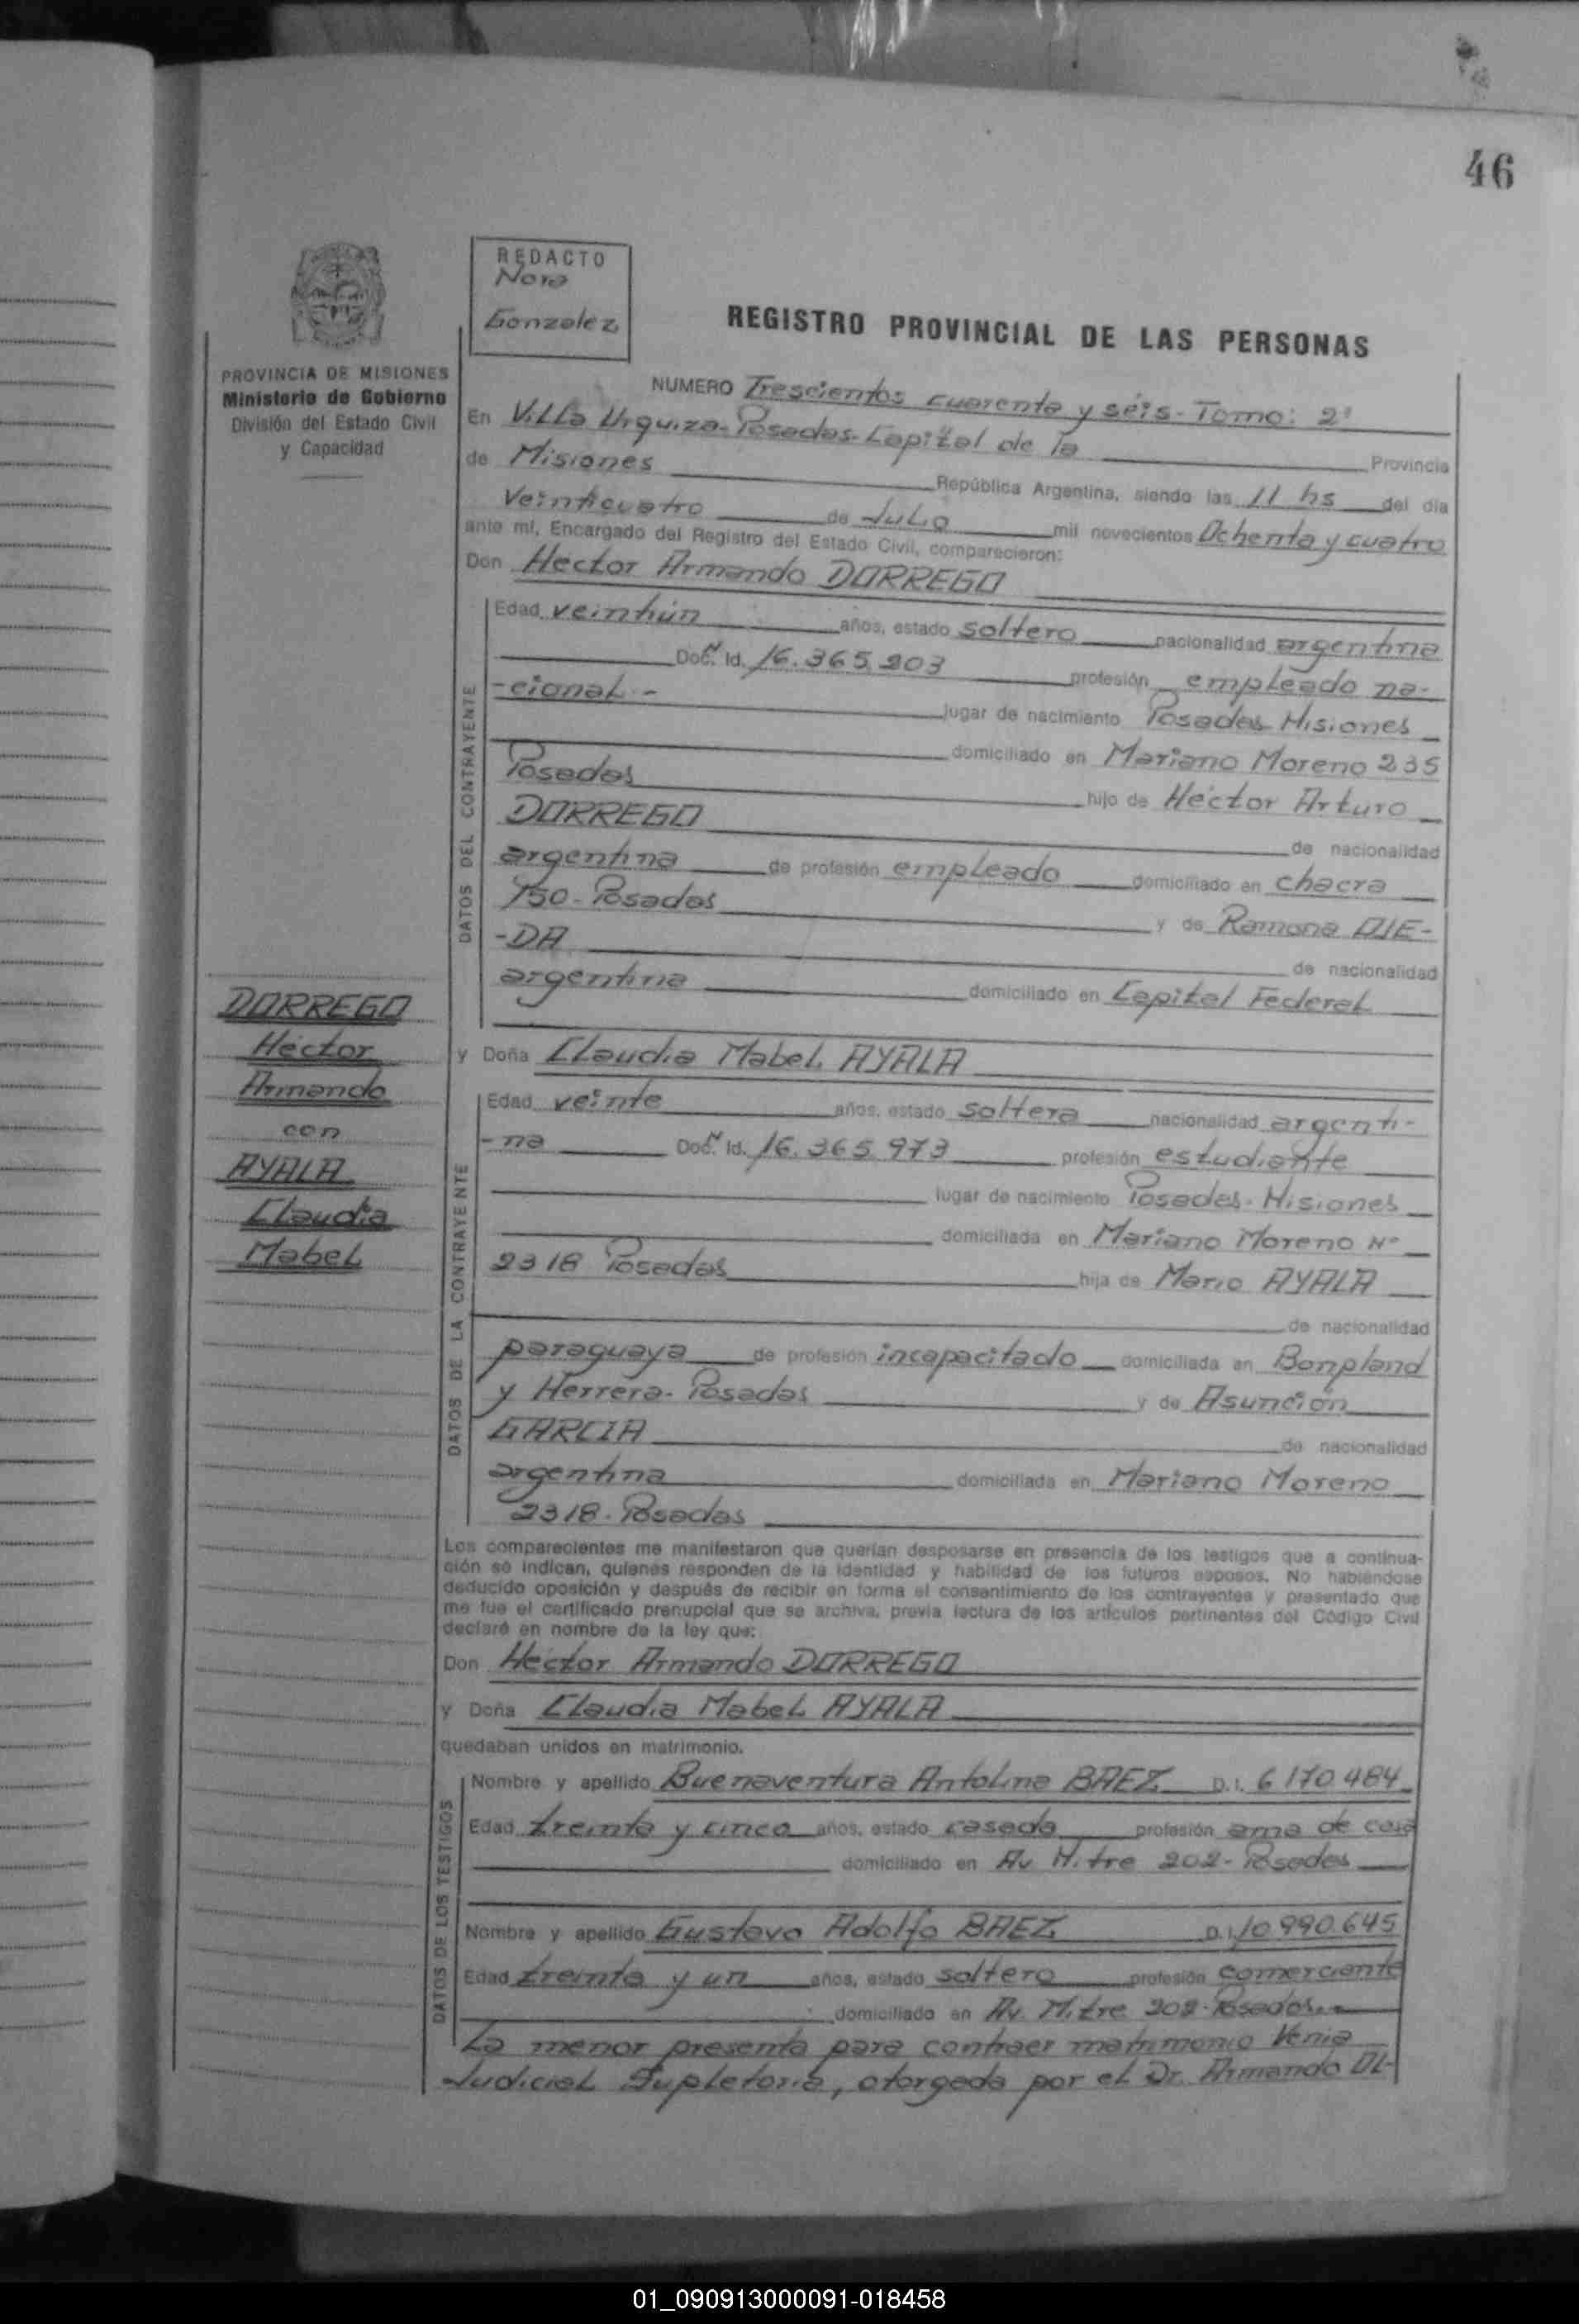 46
REDACTO
Nora
Gonzalez
REGISTRO PROVINCIAL DE LAS PERSONAS
PROVINCIA DE MISIONES
Ministerio de Gobierno
División del Estado Civil
y Capacidad
NUMERO Trescientos cuarenta y séis - Tomo: 2º
En Villa Urquiza - Posadas - Capital de la Provincia
de Misiones República Argentina, siendo las 11 hs del día
Veinticuatro de Julio mil novecientos Ochenta y cuatro
ante mí, Encargado del Registro del Estado Civil, comparecieron:
Don Hector Armando DORREGO
DATOS DEL CONTRAYENTE
Edad veintiún años, estado soltero nacionalidad argentina
Doc. Id. Nº 16.365.203 profesión empleado na-
-cional.- lugar de nacimiento Posadas Misiones
domiciliado en Mariano Moreno 235
Posadas hijo de Héctor Arturo
DORREGO de nacionalidad
argentina de profesión empleado domiciliado en chacra
150 - Posadas y de Ramona OJE-
-DA de nacionalidad
argentina domiciliado en Capital Federal
DORREGO
Héctor
Armando
con
AYALA
Claudia
Mabel
y Doña Claudia Mabel AYALA
DATOS DE LA CONTRAYENTE
Edad veinte años, estado soltera nacionalidad argenti-
-na Doc. Id. Nº 16.365.973 profesión estudiante
lugar de nacimiento Posadas - Misiones
domiciliada en Mariano Moreno Nº
2318 Posadas hija de Mario AYALA
de nacionalidad
paraguaya de profesión incapacitado domiciliada en Bonpland
y Herrera - Posadas y de Asunción
GARCIA de nacionalidad
argentina domiciliada en Mariano Moreno
2318 - Posadas
Los comparecientes me manifestaron que querían desposarse en presencia de los testigos que a continua-
ción se indican, quienes responden de la identidad y habilidad de los futuros esposos. No habiéndose
deducido oposición y después de recibir en forma el consentimiento de los contrayentes y presentado que
me fue el certificado prenupcial que se archiva, previa lectura de los artículos pertinentes del Código Civil
declaré en nombre de la ley que:
Don Héctor Armando DORREGO
y Doña Claudia Mabel AYALA
quedaban unidos en matrimonio.
DATOS DE LOS TESTIGOS
Nombre y apellido Buenaventura Antolina BAEZ D.I. 6.170.484
Edad treinta y cinco años, estado casada profesión ama de casa
domiciliado en Av. Mitre 202 - Posadas
Nombre y apellido Gustavo Adolfo BAEZ D.I. 10.990.645
Edad treinta y un años, estado soltero profesión comerciante
domiciliado en Av. Mitre 202 - Posadas.-
La menor presenta para contraer matrimonio Venia
Judicial Supletoria, otorgada por el Dr. Armando OL-
01_090913000091-018458